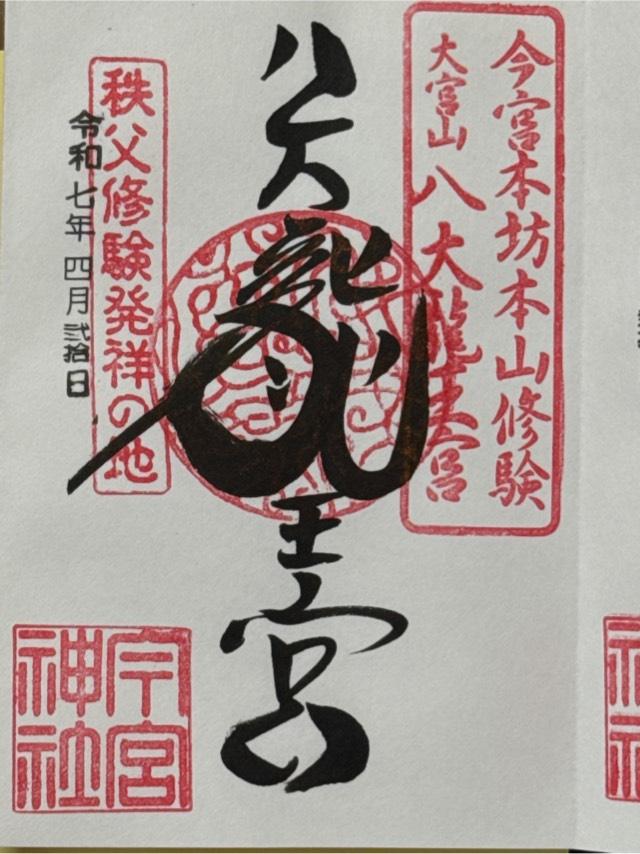 今宮本坊本山修験
大宮山八大龍王宮
八大龍王宮
秩父修験発祥の地
令和七年四月弐拾日
今宮
神社